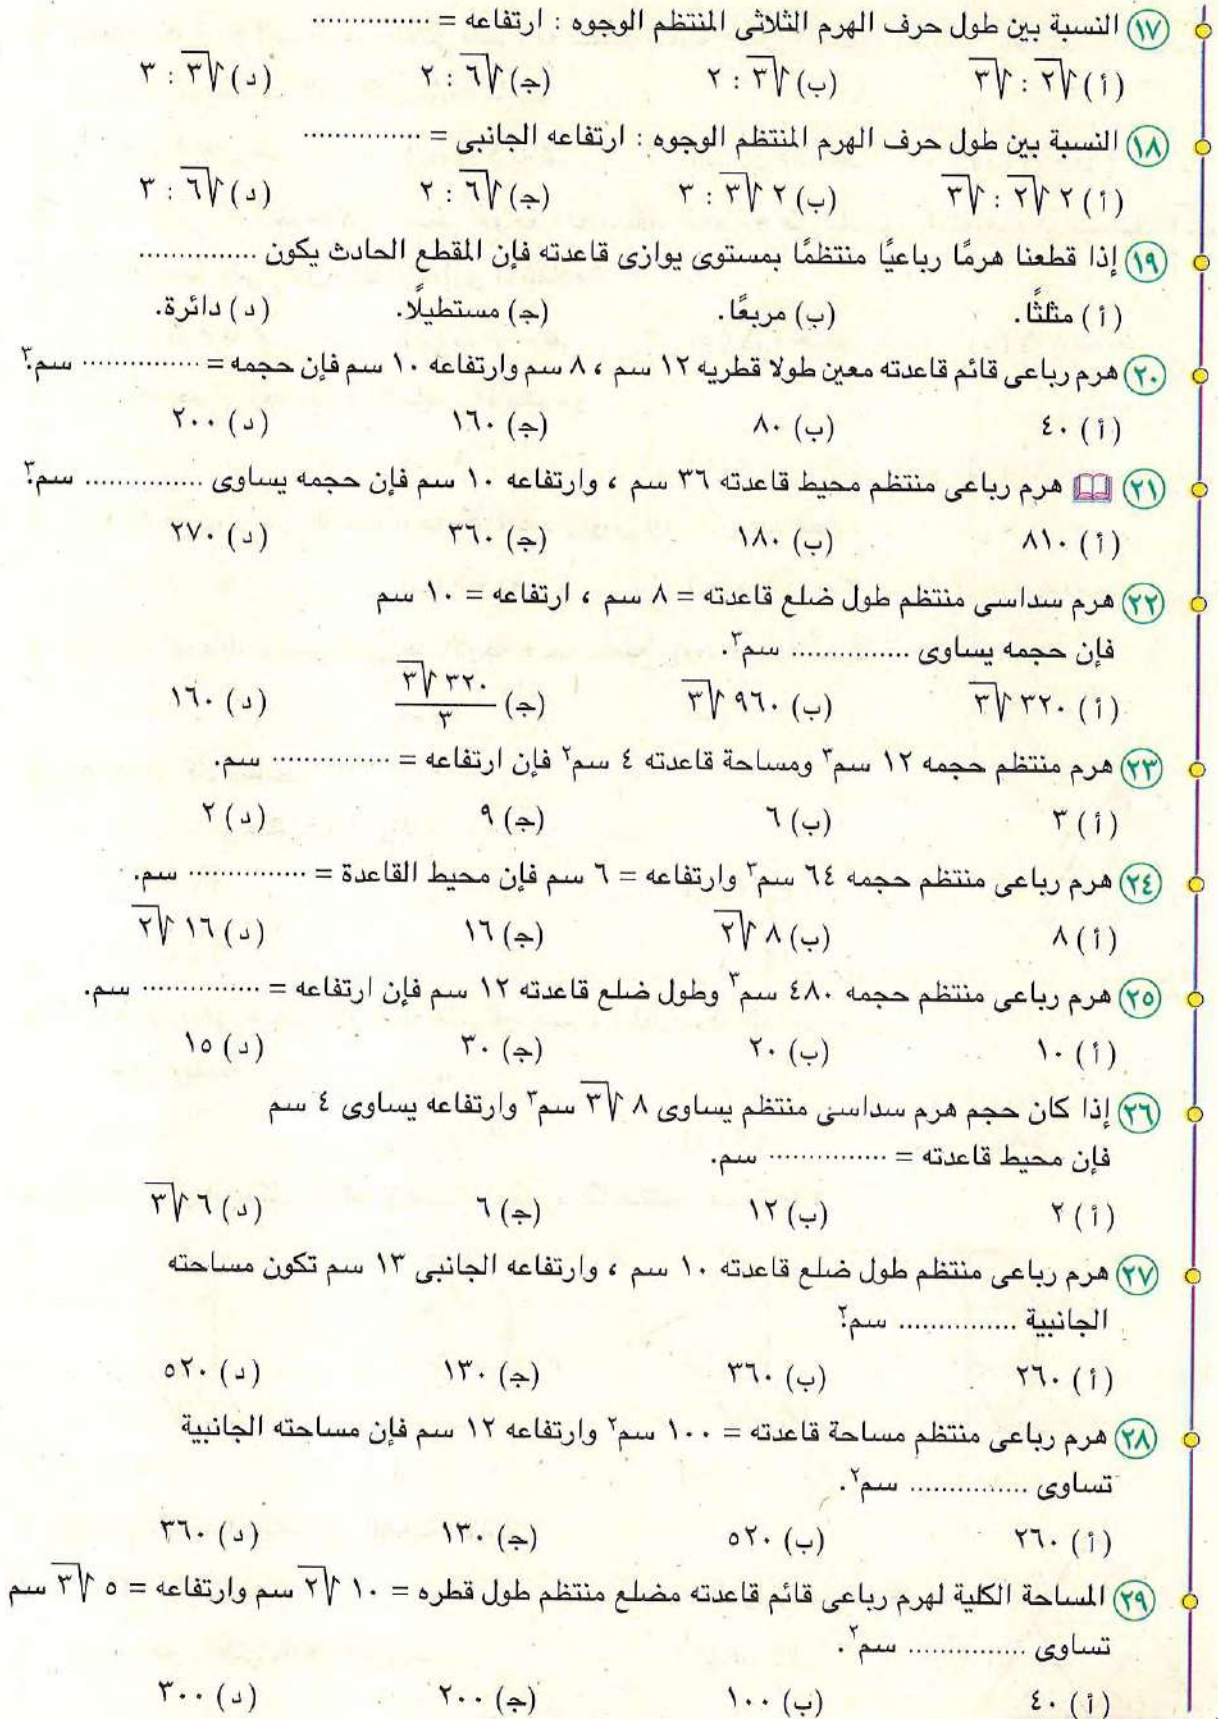 ١٧ النسبة بين طول حرف الهرم الثلاثى المنتظم الوجوه : ارتفاعه = ...............
(أ) √٢ : √٣ (ب) √٣ : ٢ (جـ) √٦ : ٢ (د) √٣ : ٣
١٨ النسبة بين طول حرف الهرم المنتظم الوجوه : ارتفاعه الجانبى = ...............
(أ) ٢√٢ : √٣ (ب) ٢√٣ : ٣ (جـ) √٦ : ٢ (د) √٦ : ٣
١٩ إذا قطعنا هرمًا رباعيًا منتظمًا بمستوى يوازى قاعدته فإن المقطع الحادث يكون ...............
(أ) مثلثًا. (ب) مربعًا. (جـ) مستطيلًا. (د) دائرة.
٢٠ هرم رباعى قائم قاعدته معين طولا قطريه ١٢ سم ، ٨ سم وارتفاعه ١٠ سم فإن حجمه = ............... سم٣.
(أ) ٤٠ (ب) ٨٠ (جـ) ١٦٠ (د) ٢٠٠
٢١ هرم رباعى منتظم محيط قاعدته ٣٦ سم ، وارتفاعه ١٠ سم فإن حجمه يساوى ............... سم٣.
(أ) ٨١٠ (ب) ١٨٠ (جـ) ٣٦٠ (د) ٢٧٠
٢٢ هرم سداسى منتظم طول ضلع قاعدته = ٨ سم ، ارتفاعه = ١٠ سم
فإن حجمه يساوى ............... سم٣.
(أ) ٣٢٠√٣ (ب) ٩٦٠√٣ (جـ) ٣٢٠√٣/٣ (د) ١٦٠
٢٣ هرم منتظم حجمه ١٢ سم٣ ومساحة قاعدته ٤ سم٢ فإن ارتفاعه = ............... سم.
(أ) ٣ (ب) ٦ (جـ) ٩ (د) ٢
٢٤ هرم رباعى منتظم حجمه ٦٤ سم٣ وارتفاعه = ٦ سم فإن محيط القاعدة = ............... سم.
(أ) ٨ (ب) ٨√٢ (جـ) ١٦ (د) ١٦√٢
٢٥ هرم رباعى منتظم حجمه ٤٨٠ سم٣ وطول ضلع قاعدته ١٢ سم فإن ارتفاعه = ............... سم.
(أ) ١٠ (ب) ٢٠ (جـ) ٣٠ (د) ١٥
٢٦ إذا كان حجم هرم سداسى منتظم يساوى ٨√٣ سم٣ وارتفاعه يساوى ٤ سم
فإن محيط قاعدته = ............... سم.
(أ) ٢ (ب) ١٢ (جـ) ٦ (د) ٦√٣
٢٧ هرم رباعى منتظم طول ضلع قاعدته ١٠ سم ، وارتفاعه الجانبى ١٣ سم تكون مساحته
الجانبية ............... سم٢.
(أ) ٢٦٠ (ب) ٣٦٠ (جـ) ١٣٠ (د) ٥٢٠
٢٨ هرم رباعى منتظم مساحة قاعدته = ١٠٠ سم٢ وارتفاعه ١٢ سم فإن مساحته الجانبية
تساوى ............... سم٢.
(أ) ٢٦٠ (ب) ٥٢٠ (جـ) ١٣٠ (د) ٣٦٠
٢٩ المساحة الكلية لهرم رباعى قائم قاعدته مضلع منتظم طول قطره = ١٠√٢ سم وارتفاعه = ٥√٣ سم
تساوى ............... سم٢.
(أ) ٤٠ (ب) ١٠٠ (جـ) ٢٠٠ (د) ٣٠٠